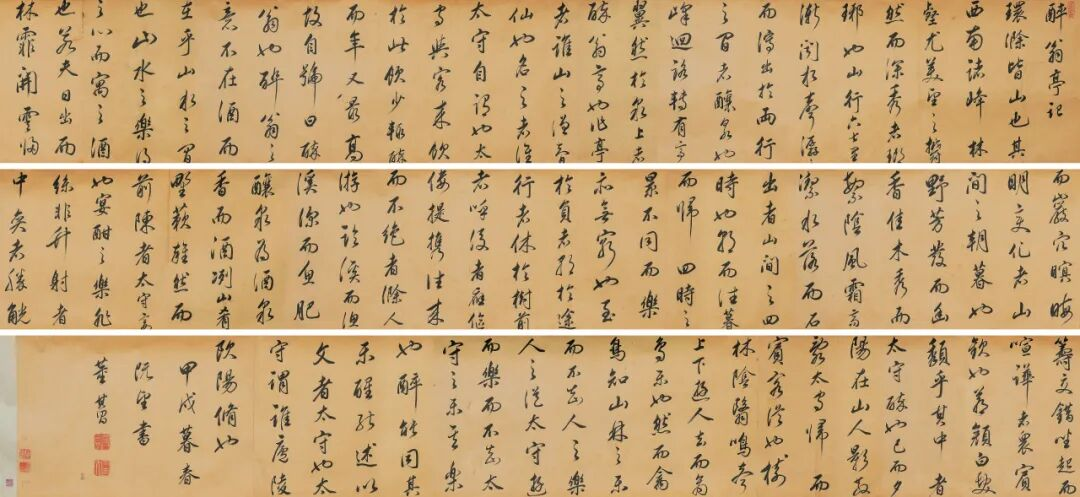 醉翁亭記
環滁皆山也其
西南諸峰林
壑尤美望之蔚
然而深秀者瑯
琊也山行六七里
漸聞水聲潺
而瀉出於兩行
之間者釀泉也
峰迴路轉有亭
翼然於泉上者
醉翁亭也作亭
者誰山之僧智
仙也名之者誰
太守自謂也太
守與客來飲
於此飲少輒醉
而年又最高
故自號曰醉
翁也醉翁之
意不在酒而
在乎山水之間
也山水之樂得
之心而寓之酒
也若夫日出而
林霏開雲歸
而巖穴暝晦
明變化者山
間之朝暮也
野芳發而幽
香佳木秀而
繁陰風霜高
潔水落而石
出者山間之四
時也朝而往暮
而歸四時之
景不同而樂
亦無窮也至
於負者歌於途
行者休於樹前
者呼後者應傴
僂提攜往來
而不絕者滁人
游也臨溪而漁
溪深而魚肥
釀泉為酒泉
香而酒冽山肴
野蔌雜然而
前陳者太守宴
也宴酣之樂非
絲非竹射者
中奕者勝觥
籌交錯坐起而
喧譁者衆賓
歡也蒼顏白髮
頹乎其中者
太守醉也已而夕
陽在山人影散
亂太守歸而
賓客從也樹
林陰翳鳴聲
上下遊人去而禽
鳥樂也然而禽
鳥知山林之樂
而不知人之樂
人知從太守遊
而樂而不知太
守之樂其樂
也醉能同其
樂醒能述以
文者太守也太
守謂誰廬陵
歐陽脩也
甲戌暮春
既望書
董其昌